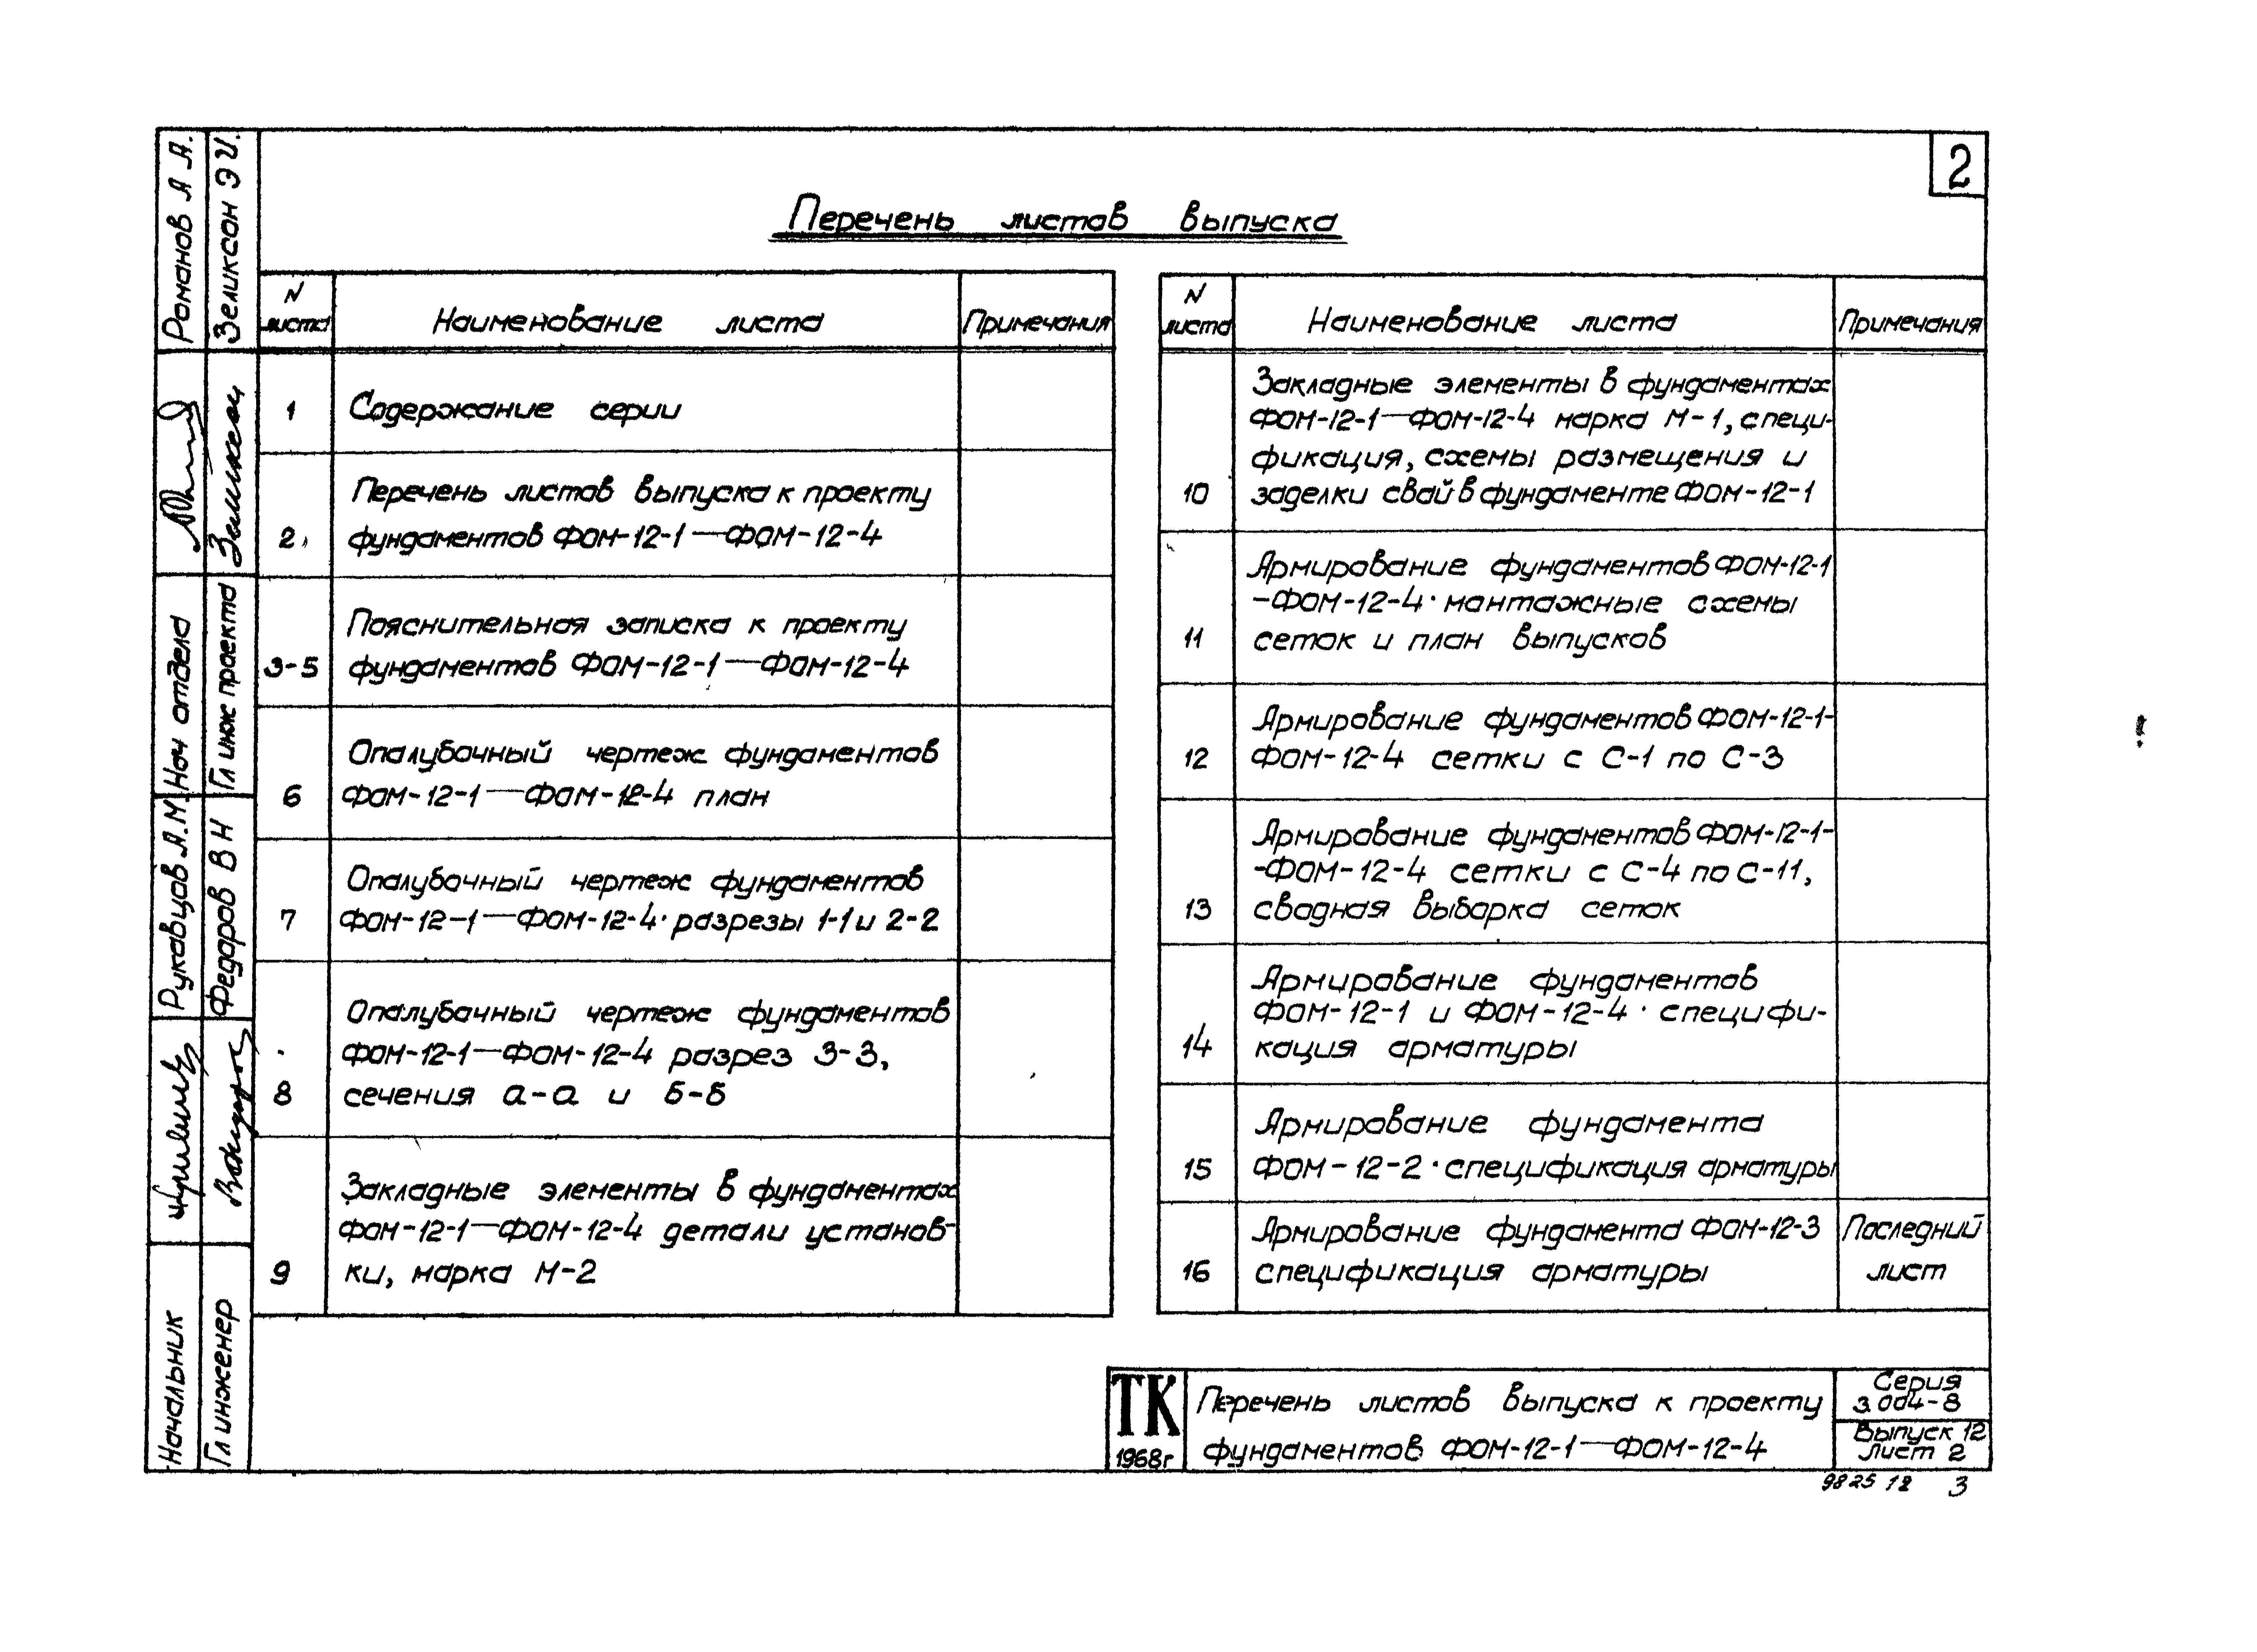 2
Перечень листов выпуска
N листа
Наименование листа
Примечания
1
Содержание серии
2
Перечень листов выпуска к проекту
фундаментов ФОМ-12-1—ФОМ-12-4
3-5
Пояснительная записка к проекту
фундаментов ФОМ-12-1—ФОМ-12-4
6
Опалубочный чертеж фундаментов
ФОМ-12-1—ФОМ-12-4 план
7
Опалубочный чертеж фундаментов
ФОМ-12-1—ФОМ-12-4· разрезы 1-1 и 2-2
8
Опалубочный чертеж фундаментов
ФОМ-12-1—ФОМ-12-4 разрез 3-3,
сечения а-а и б-б
9
Закладные элементы в фундаментах
ФОМ-12-1—ФОМ-12-4 детали установ-
ки, марка М-2
N листа
Наименование листа
Примечания
10
Закладные элементы в фундаментах
ФОМ-12-1—ФОМ-12-4 марка М-1, специ-
фикация, схемы размещения и
заделки свай в фундаменте ФОМ-12-1
11
Армирование фундаментов ФОМ-12-1
-ФОМ-12-4· монтажные схемы
сеток и план выпусков
12
Армирование фундаментов ФОМ-12-1-
ФОМ-12-4 сетки с С-1 по С-3
13
Армирование фундаментов ФОМ-12-1-
-ФОМ-12-4 сетки с С-4 по С-11,
сводная выборка сеток
14
Армирование фундаментов
ФОМ-12-1 и ФОМ-12-4· специфи-
кация арматуры
15
Армирование фундамента
ФОМ-12-2· спецификация арматуры
16
Армирование фундамента ФОМ-12-3
спецификация арматуры
Последний
лист
ТК
1968г
Перечень листов выпуска к проекту
фундаментов ФОМ-12-1—ФОМ-12-4
Серия
3.004-8
Выпуск 12
Лист 2
9825 12 3
Начальник
Рукавцов А.М.
Нач отдела
Романов А А.
Гл инженер
Федоров В Н
Гл инж проекта
Зеликсон Э И.